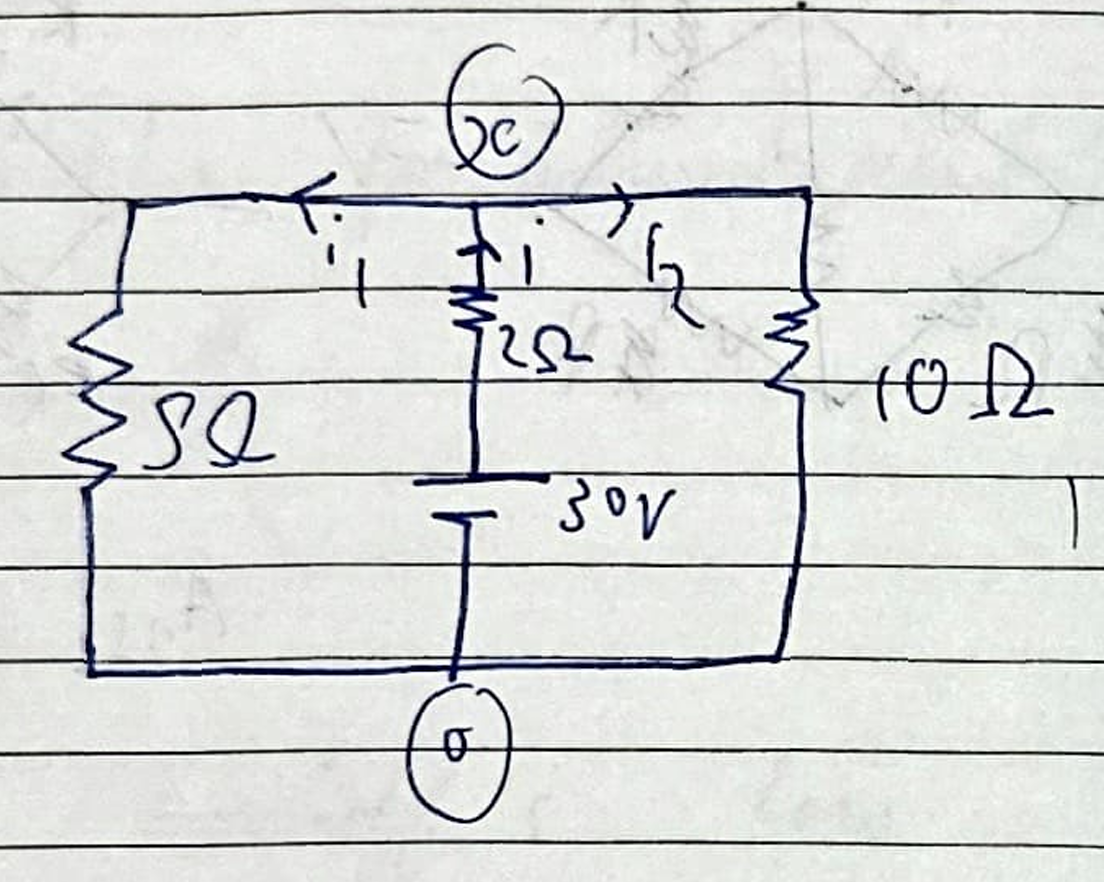 x
i₁ i i₂
2Ω
5Ω 10Ω
30V
0